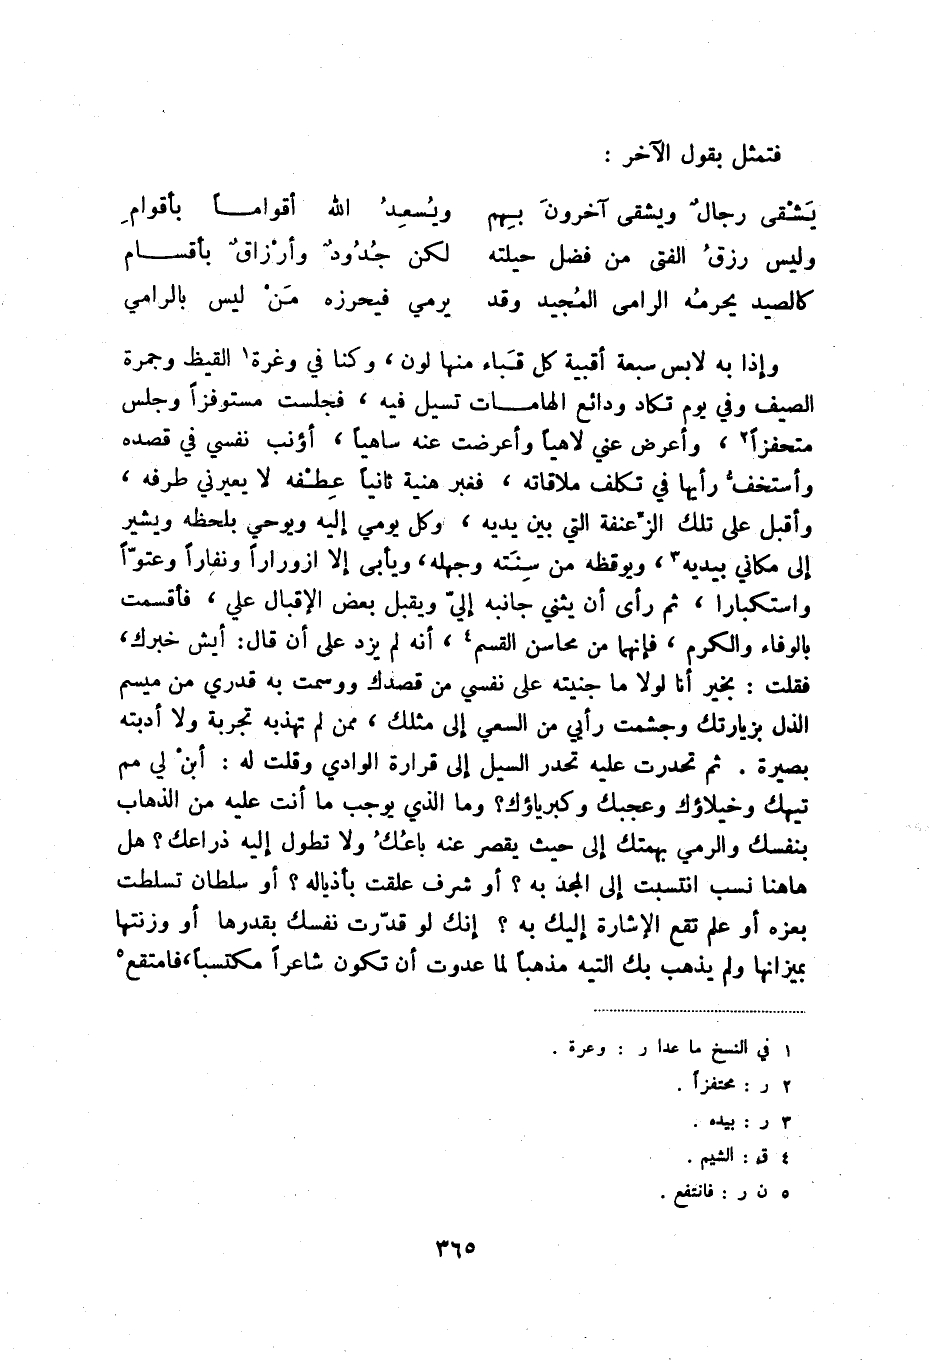 فتمثل بقول الآخر :
يَشْقى رجالٌ ويشقى آخرونَ بهم ويُسعِدُ الله أقوامـــاً بأقوامِ
وليس رزقُ الفتى من فضل حيلته لكن جُدُودٌ وأرْزاقٌ بأقســـام
كالصيد يحرمُه الرامى المُجيد وقد يرمي فيحرزه مَنْ ليس بالرامي
وإذا به لابس سبعة أقبية كل قَباء منها لون ، وكنا في وغرة١ القيظ وجمرة
الصيف وفي يوم تكاد ودائع الهامـــات تسيل فيه ، فجلست مستوفزاً وجلس
متحفزاً٢ ، وأعرض عني لاهياً وأعرضت عنه ساهياً ، أؤنب نفسي في قصده
وأستخفُّ رأيها في تكلف ملاقاته ، فغبر هنية ثانياً عِطْفه لا يعيرني طرفه ،
وأقبل على تلك الزِّعنفة التي بين يديه ، وكل يومي إليه ويوحي بلحظه ويشير
إلى مكاني بيديه٣ ، ويوقظه من سِنَته وجهله، ويأبى إلا ازوراراً ونفاراً وعتوّاً
واستكبارا ، ثم رأى أن يثني جانبه إليّ ويقبل بعض الإقبال علي ، فأقسمت
بالوفاء والكرم ، فإنها من محاسن القسم٤ ، أنه لم يزد على أن قال: أيش خبرك،
فقلت : بخير أنا لولا ما جنيته على نفسي من قصدك ووسمت به قدري من ميسم
الذل بزيارتك وجشمت رأيي من السعي إلى مثلك ، ممن لم تهذبه تجربة ولا أدبته
بصيرة . ثم تحدرت عليه تحدر السيل إلى قرارة الوادي وقلت له : أبنْ لي مم
تيهك وخيلاؤك وعجبك وكبرياؤك؟ وما الذي يوجب ما أنت عليه من الذهاب
بنفسك والرمي بهمتك إلى حيث يقصر عنه باعُكُ ولا تطول إليه ذراعك ؟ هل
هاهنا نسب انتسبت إلى المجد به ؟ أو شرف علقت بأذياله ؟ أو سلطان تسلطت
بعزه أو علم تقع الإشارة إليك به ؟ إنك لو قدّرت نفسك بقدرها أو وزنتها
بميزانها ولم يذهب بك التيه مذهباً لما عدوت أن تكون شاعراً مكتسباً،فامتقع٥
١ في النسخ ما عدا ر : وعرة .
٢ ر : محتفزاً .
٣ ر : بيده .
٤ ق : الشيم .
٥ ن ر : فانتفع .
٣٦٥